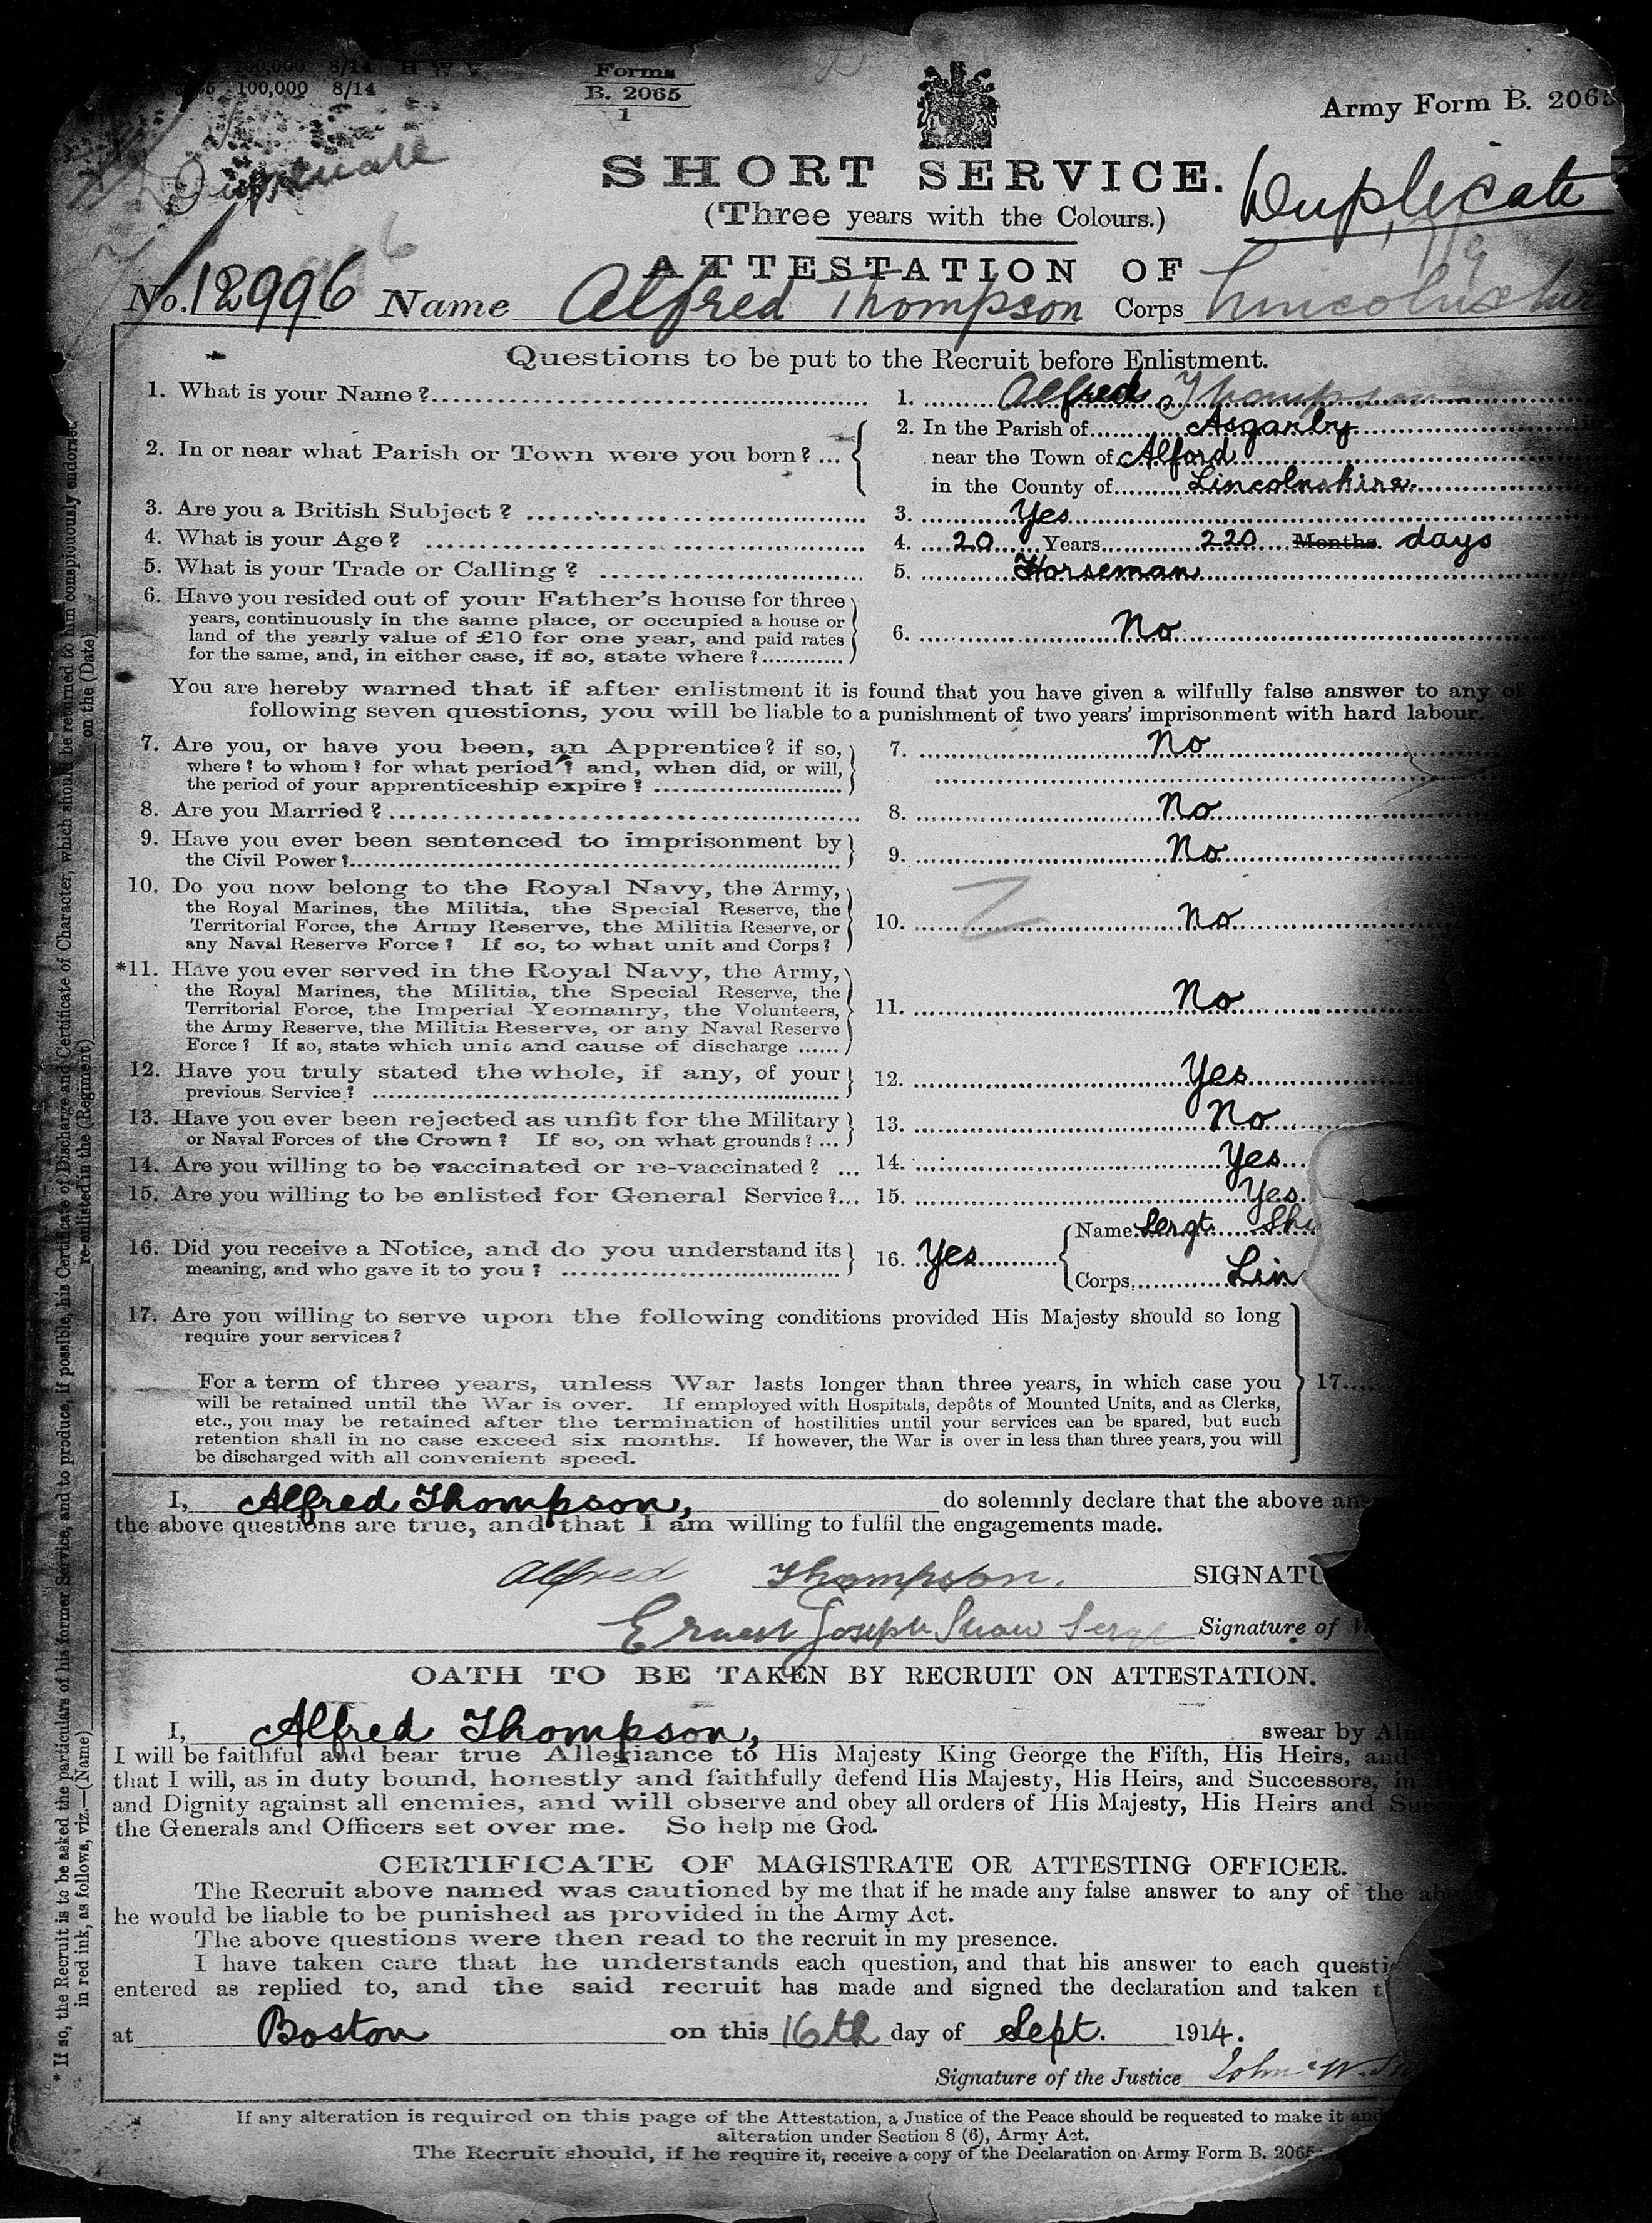 100,000 8/14
Forms
B. 2065
1
Army Form B. 2065
Duplicate
SHORT SERVICE.
Duplicate
(Three years with the Colours.)
ATTESTATION OF
No. 12996 Name Alfred Thompson Corps Lincolnshire
Questions to be put to the Recruit before Enlistment.
1. What is your Name? 1. Alfred Thompson
2. In or near what Parish or Town were you born? ... 2. In the Parish of Asgarby
near the Town of Alford
in the County of Lincolnshire
3. Are you a British Subject? 3. Yes
4. What is your Age? 4. 20 Years 220 Months days
5. What is your Trade or Calling? 5. Horseman
6. Have you resided out of your Father's house for three
years, continuously in the same place, or occupied a house or
land of the yearly value of £10 for one year, and paid rates
for the same, and, in either case, if so, state where? 6. No
You are hereby warned that if after enlistment it is found that you have given a wilfully false answer to any of
following seven questions, you will be liable to a punishment of two years' imprisonment with hard labour.
7. Are you, or have you been, an Apprentice? if so, 7. No
where? to whom? for what period? and, when did, or will,
the period of your apprenticeship expire?
8. Are you Married? 8. No
9. Have you ever been sentenced to imprisonment by
the Civil Power? 9. No
10. Do you now belong to the Royal Navy, the Army,
the Royal Marines, the Militia, the Special Reserve, the
Territorial Force, the Army Reserve, the Militia Reserve, or
any Naval Reserve Force? If so, to what unit and Corps? 10. No
*11. Have you ever served in the Royal Navy, the Army,
the Royal Marines, the Militia, the Special Reserve, the
Territorial Force, the Imperial Yeomanry, the Volunteers,
the Army Reserve, the Militia Reserve, or any Naval Reserve
Force? If so, state which unit and cause of discharge ...... 11. No
12. Have you truly stated the whole, if any, of your
previous Service? 12. Yes
13. Have you ever been rejected as unfit for the Military
or Naval Forces of the Crown? If so, on what grounds? ... 13. No
14. Are you willing to be vaccinated or re-vaccinated? ... 14. Yes
15. Are you willing to be enlisted for General Service?... 15. Yes
16. Did you receive a Notice, and do you understand its
meaning, and who gave it to you? 16. Yes Name Sergt.
Corps Lin
17. Are you willing to serve upon the following conditions provided His Majesty should so long
require your services?
For a term of three years, unless War lasts longer than three years, in which case you 17....
will be retained until the War is over. If employed with Hospitals, depôts of Mounted Units, and as Clerks,
etc., you may be retained after the termination of hostilities until your services can be spared, but such
retention shall in no case exceed six months. If however, the War is over in less than three years, you will
be discharged with all convenient speed.
I, Alfred Thompson, do solemnly declare that the above
the above questions are true, and that I am willing to fulfil the engagements made.
Alfred Thompson. SIGNATU
Ernest Joseph Shaw Sergt Signature of
OATH TO BE TAKEN BY RECRUIT ON ATTESTATION.
I, Alfred Thompson, swear by
I will be faithful and bear true Allegiance to His Majesty King George the Fifth, His Heirs, and
that I will, as in duty bound, honestly and faithfully defend His Majesty, His Heirs, and Successors, in
and Dignity against all enemies, and will observe and obey all orders of His Majesty, His Heirs and
the Generals and Officers set over me. So help me God.
CERTIFICATE OF MAGISTRATE OR ATTESTING OFFICER.
The Recruit above named was cautioned by me that if he made any false answer to any of the
he would be liable to be punished as provided in the Army Act.
The above questions were then read to the recruit in my presence.
I have taken care that he understands each question, and that his answer to each questi
entered as replied to, and the said recruit has made and signed the declaration and taken
at Boston on this 16th day of Sept. 1914.
Signature of the Justice John W.
If any alteration is required on this page of the Attestation, a Justice of the Peace should be requested to make it and
alteration under Section 8 (6), Army Act.
The Recruit should, if he require it, receive a copy of the Declaration on Army Form B. 2065
* If so, the Recruit is to be asked the particulars of his former Service, and to produce, if possible, his Certificate of Discharge and Certificate of Character, which should be returned to him conspicuously endorsed
in red ink, as follows, viz.—(Name) re-enlisted in the (Regiment) on the (Date)